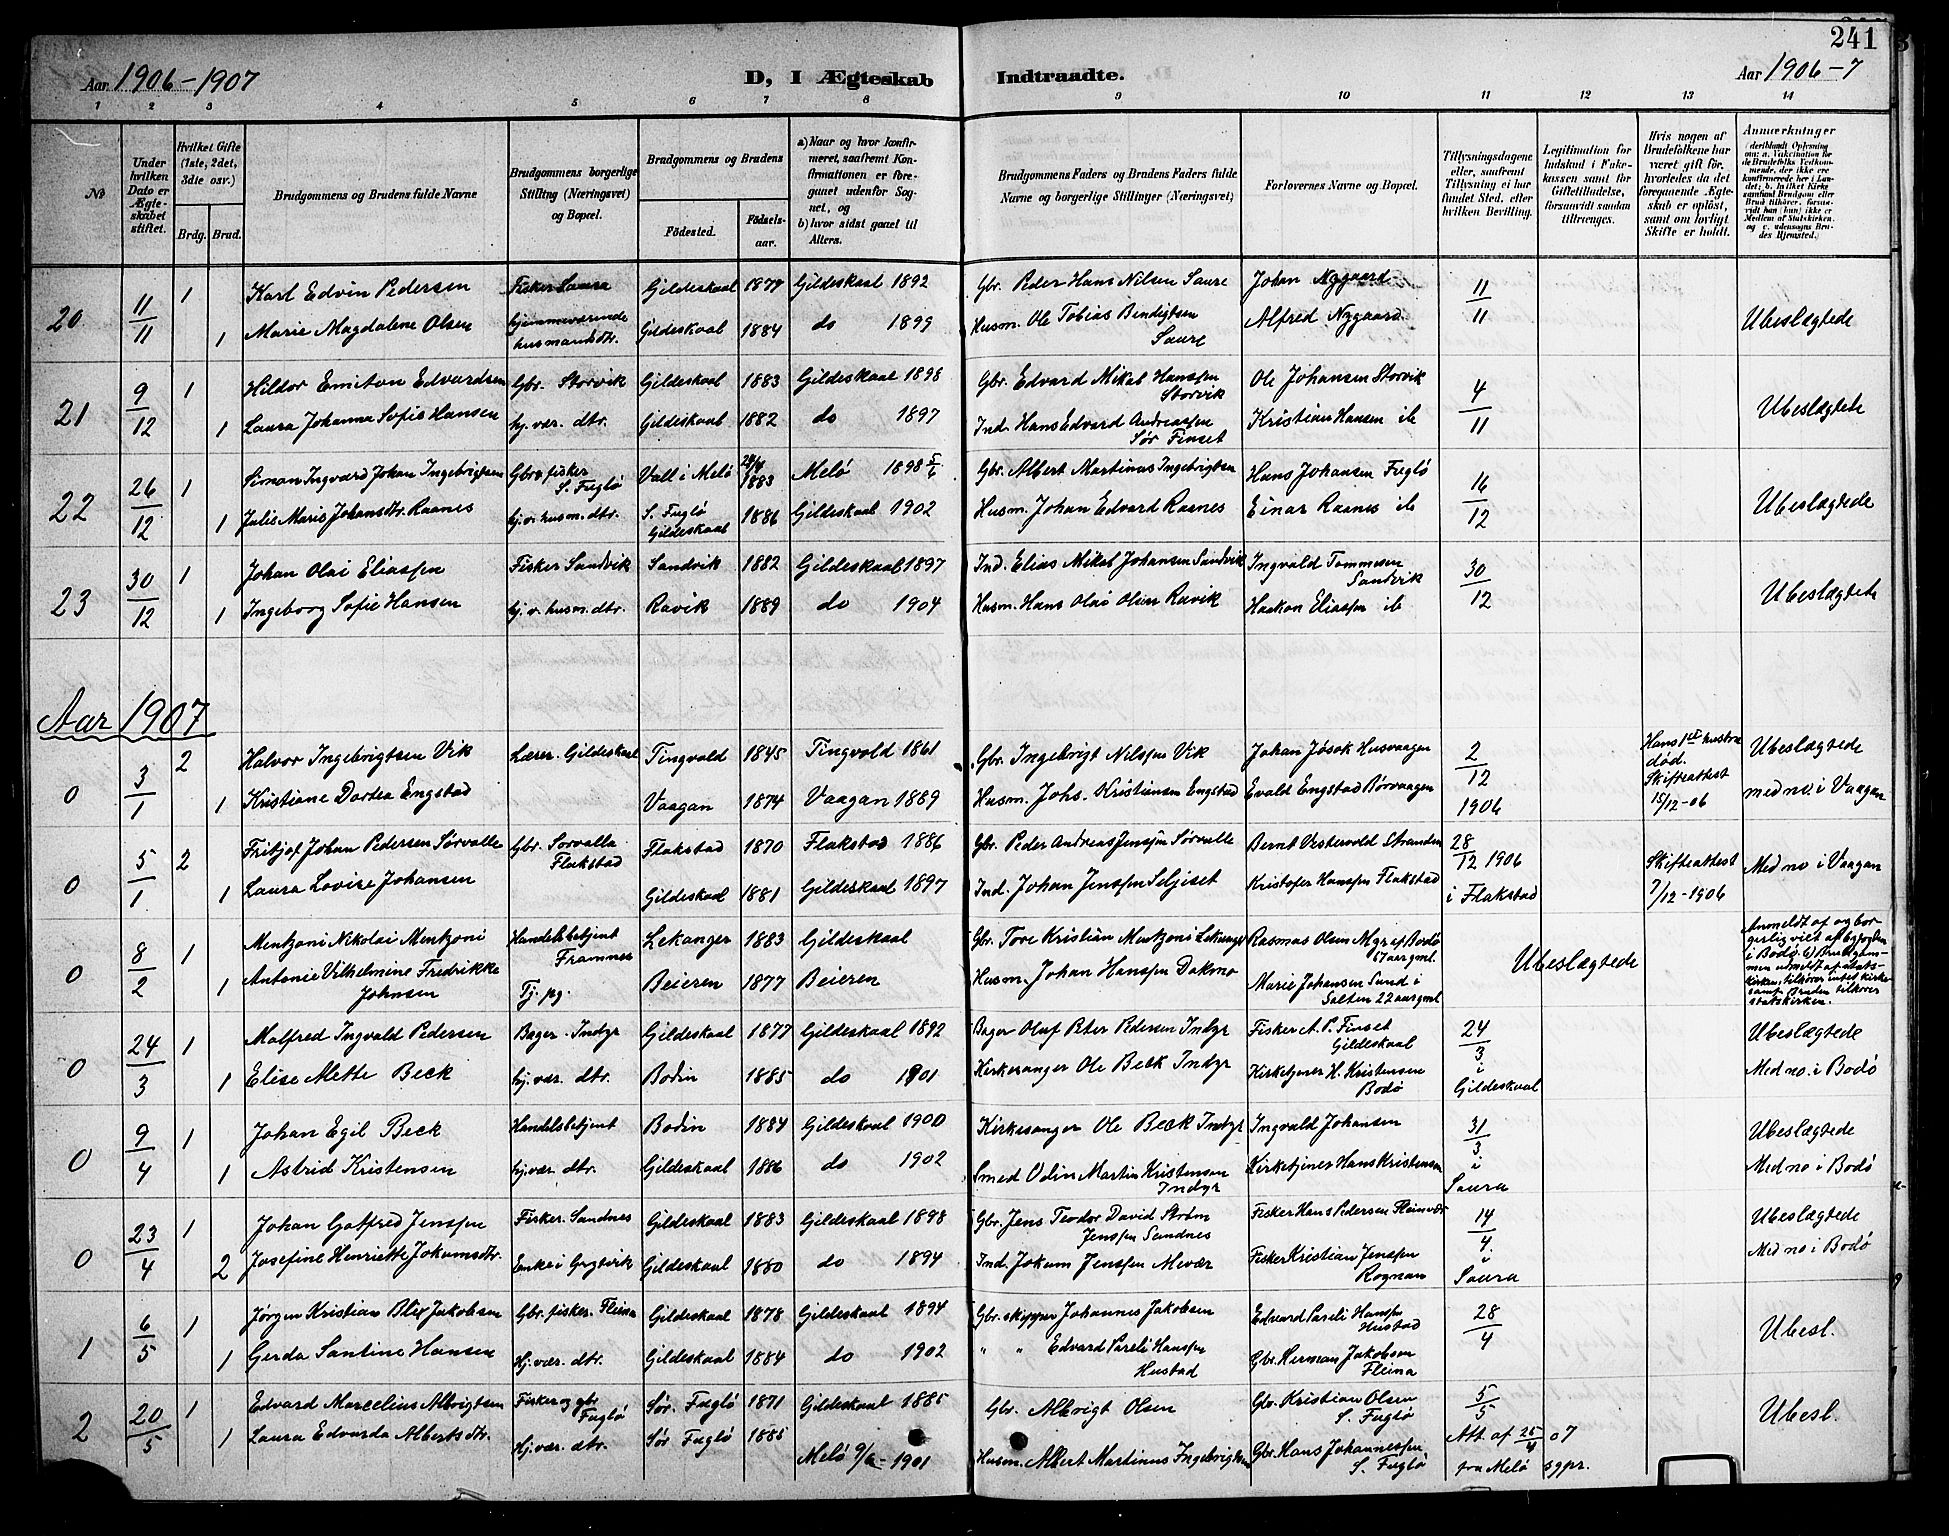 241
Aar 1906-1907
D, I Ægteskab Indtraadte.
Aar 1906-7
1 2 3 4 5 6 7 8 9 10 11 12 13 14
No
Under hvilken Dato er Ægteskabet stiftet.
Hvilket Gifte (1ste, 2det, 3die osv.)
Brdg. Brud.
Brudgommens og Brudens fulde Navne
Brudgommens borgerlige Stilling (Næringsvei) og Bopæl.
Brudgommens og Brudens
Fødested.
Fødselsaar.
a) Naar og hvor konfirmeret, saafremt Konfirmationen er foregaaet udenfor Sognet, og
b) hvor sidst gaaet til Alters.
Brudgommens Faders og Brudens Faders fulde Navne og borgerlige Stillinger (Næringsvei)
Forlovernes Navne og Bopæl.
Tillysningsdagene eller, saafremt Tillysning ei har fundet Sted, efter hvilken Bevilling.
Legitimation for Indskud i Enkekassen samt for Giftetilladelse, forsaavidt saadan tiltrænges.
Hvis nogen af Brudefolkene har været gift før, hvorledes da det foregaaende Ægteskab er opløst, samt om lovligt Skifte er holdt.
Anmærkninger
(deriblandt Oplysning om: a. Vakcination for de Brudefolks Vedkommende, der ikke ere konfirmerede her i Landet; b. hvilket Kirkesamfund Brudgom eller Brud tilhører, forsaavidt han (hun) ikke er Medlem af Statskirken, og c. udensogns Brudes Hjemsted.)
20. 11/11 1 Karl Edvin Pedersen Fisker Saura Gildeskaal 1874 Gildeskaal 1892 Gbr. Peder Hans Nilsen Saure Johan Nygaard 11/11
1 Marie Magdalene Olsen hjemmeværende husmandsdtr. Gildeskaal 1884 do 1899 Husm. Ole Tobias Bendigtsen Saure Alfred Nygaard Ubeslægtede
21 9/12 1 Hildor Emiton Edvardsen Gbr. Storvik Gildeskaal 1883 Gildeskaal 1898 Gbr. Edvard Mikal Hanssen Storvik Ole Johansen Storvik 4/11
1 Laura Johanna Sofie Hansen hj. vær. dtr. Gildeskaal 1882 do 1897 Ind. Hans Edvard Andreassen Sør Finset Kristian Hansen ib Ubeslægtede
22 26/12 1 Simon Ingvard Johan Ingebrigtsen Gbr & fisker S. Fuglø Vall i Melø 1883 Melø 1898 5/6 Gbr. Albert Martinus Ingebrigtsen Hans Johansen Fuglø 16/12
1 Julie Marie Johansdtr. Raanes hj. v. husm. dtr. S. Fuglø Gildeskaal 1886 Gildeskaal 1902 Husm. Johan Edvard Raanes Einar Raanes ib Ubeslægtede
23 30/12 1 Johan Olai Eliassen Fisker Sandvik Sandvik 1882 Gildeskaal 1897 Ind. Elias Mikal Johansen Sandvik Ingvald Tommesen Sandvik 30/12
1 Ingeborg Sofie Hansen hj. v. husm. dtr. Ravik 1889 do 1904 Husm. Hans Olai Olsen Ravik Haakon Eliassen ib Ubeslægtede
Aar 1907
0 3/1 2 Halvor Ingebrigtsen Vik Lærer. Gildeskaal Tingvold 1845 Tingvold 1861 Gbr. Ingebrigt Nilssen Vik Johan Jøsok Husvaagen 2/12 1906 Hans 1ste hustru død. Skifteattest 15/12-06 Ubeslægtede
1 Kristiane Dortea Engstad Vaagan 1874 Vaagan 1889 Husm. Johs. Kristiansen Engstad Evald Engstad Rørvaagen med no. i Vaagan
0 5/1 2 Fritjof Johan Pedersen Sørvalle Gbr. Sørvalle Flakstad Flakstad 1870 Flakstad 1886 Gbr. Peder Andreas Jenssen Sørvalle Bernt Vestervold Stranden 28/12 1906 i Flakstad Skifteattest 7/12-1906 Med no i Vaagan
1 Laura Lovise Johansen Gildeskaal 1881 Gildeskaal 1897 Ind. Johan Jenssen Seljeset Kristofer Hanssen Flakstad
0 8/2 1 Mentzoni Nikolai Mentzoni Handelsbetjent Framnes Lekanger 1883 Gildeskaal Gbr. Tore Kristian Mentzoni Lekanger Rasmus Olsen Myr af Bodø 67 aar gml. Ubeslægtede
1 Antonie Vilhelmine Fredrikke Johnsen Tj. pg. Beieren 1877 Beieren Husm. Johan Hanssen Dokmo Marie Johansen Sund i Salten 22 aar gml Anmeldt af og borgerlig viet af byfogden i Bodø. b) Brudgommen udmeldt af statskirken, tilhører intet kirkesamf. Bruden tilhører statskirken.
0 24/3 1 Malfred Ingvald Pedersen Bager. Indyr Gildeskaal 1877 Gildeskaal 1892 Bager Oluf Peter Pedersen Indyr Fisker A. P. Finset Gildeskaal 24/3 i Gildeskaal Ubeslægtede
1 Elise Mette Beck hj. vær. dtr. Bodin 1885 do 1901 Kirkesanger Ole Beck Indyr Kirketjener H. Kristensen Bodø Med no. i Bodø
0 9/4 1 Johan Egil Beck Handelsbetjent Bodin 1884 Gildeskaal 1900 Kirkesanger Ole Beck Indyr Ingvald Johansen 31/3 i Saura Ubeslægtede
1 Astrid Kristensen hj. vær. dtr. Gildeskaal 1886 do 1902 Smed Odin Martin Kristensen Indyr Kirketjener Hans Kristensen Med no i Bodø
0 23/4 1 Johan Gotfred Jenssen Fisker. Sandnes Gildeskaal 1883 Gildeskaal 1898 Gbr. Jens Teodor David Strøm Jenssen Sandnes Fisker Hans Pedersen Fleinvær 14/4 i Saura Ubeslægtede
2 Josefine Henriette Jokumsdtr. Enke i Gildeskaal 1880 do 1894 Ind. Jokum Jenssen Mevær Fisker Kristian Jenssen Rognan Med no i Bodø
1 6/5 1 Jørgen Kristian Blix Jakobsen Gbr. fisker. Fleina Gildeskaal 1878 Gildeskaal 1894 Gbr. skipper Johannes Jakobsen Edvard Pareli Hanssen Hustad 28/4 Ubesl.
1 Gerda Santine Hansen Hj. vær. dtr. Gildeskaal 1884 do 1902 " " Edvard Pareli Hanssen Hustad Gbr. Herman Jakobsen Fleina
2 20/5 1 Edvard Marcelius Albrigtsen Fisker og gbr Fuglø Sør. Fuglø 1871 Gildeskaal 1885 Gbr. Albrigt Olsen Gbr. Kristian Olsen S. Fuglø 5/5 Ubesl.
1 Laura Edvarda Albertsdtr. Hj. vær. dtr. Sør Fuglø 1885 Melø 9/6-1901 Husm. Albert Martinus Ingebrigtsen Gbr. Hans Johannessen S. Fuglø Att. af 25/4 07 fra Melø sgpr.